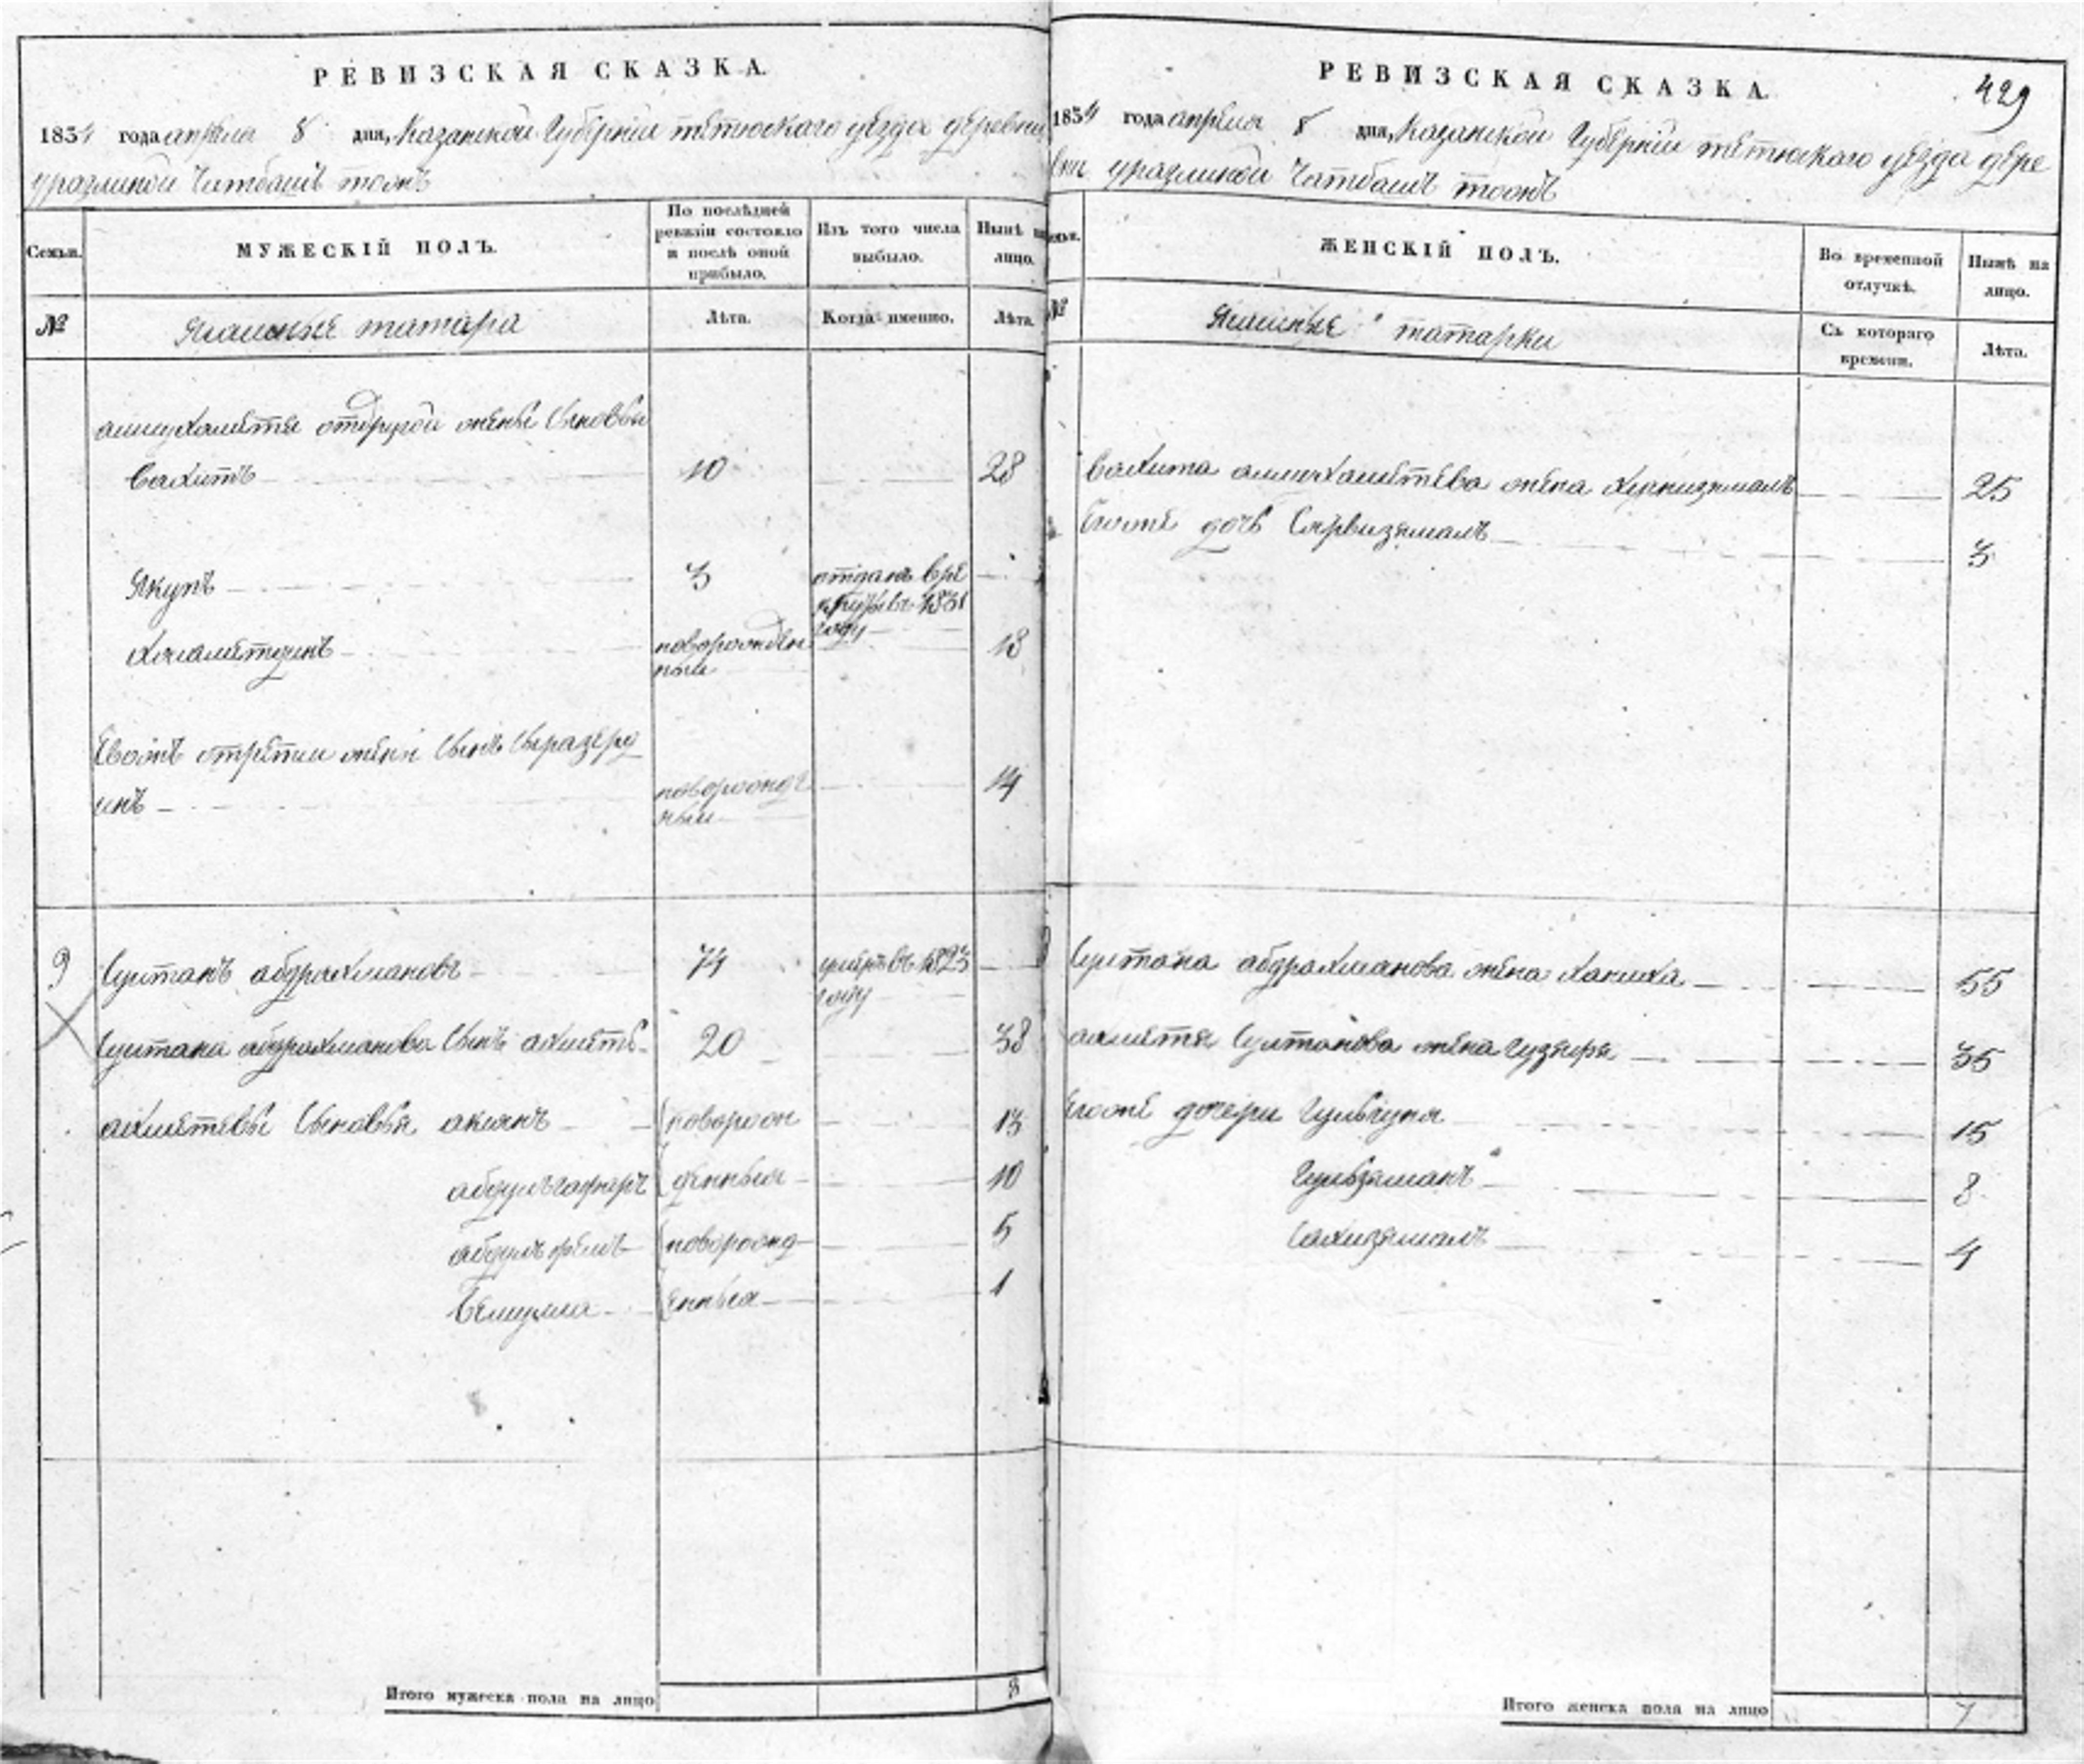 РЕВИЗСКАЯ СКАЗКА.
1834 года апреля 8 дня, Казанской Губернии тетюского уезда деревни
уразлиной Чатбашъ тожъ
Семьи.
МУЖЕСКІЙ ПОЛЪ.
По послѣдней ревизіи состояло и послѣ оной прибыло.
Изъ того числа выбыло.
Нынѣ на лицо.
№
Ясашные татара
Лѣта.
Когда именно.
Лѣта.
отдругой жены сыновья
Вахитъ 10 28
Якупъ 3 отданъ вре
крутывъ 1831
году
новорожден
ный 18
Евожъ отретьи жены сынъ
инъ новорожде
ный 14
9 Султанъ абдрахмановъ 74 умревъ 1823
году
Султана абдрахманова сынъ ахметъ 20 38
ахметевы сыновья акжанъ новорож 13
абдулъгафаръ денныя 10
новорожд 5
енныя 1
Итого мужеска пола на лицо 8
РЕВИЗСКАЯ СКАЗКА.
429
1834 года апреля 8 дня, Казанской Губернии тетюского уезда дере
вни уразлиной Чатбашъ тожъ
Семьи.
ЖЕНСКІЙ ПОЛЪ.
Во временной отлучкѣ.
Нынѣ на лицо.
№
Ясашные татарки
Съ котораго времени.
Лѣта.
Вахита жена 25
Егоже дочь Сярвизямалъ 3
Султана абдрахманова жена Ханиха 55
ахметя Султанова жена Гузяиря 35
Егоже дочери 15
Гульзяманъ 8
Сахизямалъ 4
Итого женска пола на лицо 7